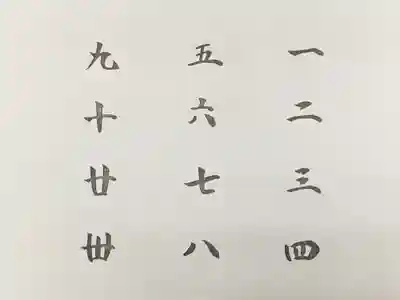 一
二
三
四
五
六
七
八
九
十
廿
卌